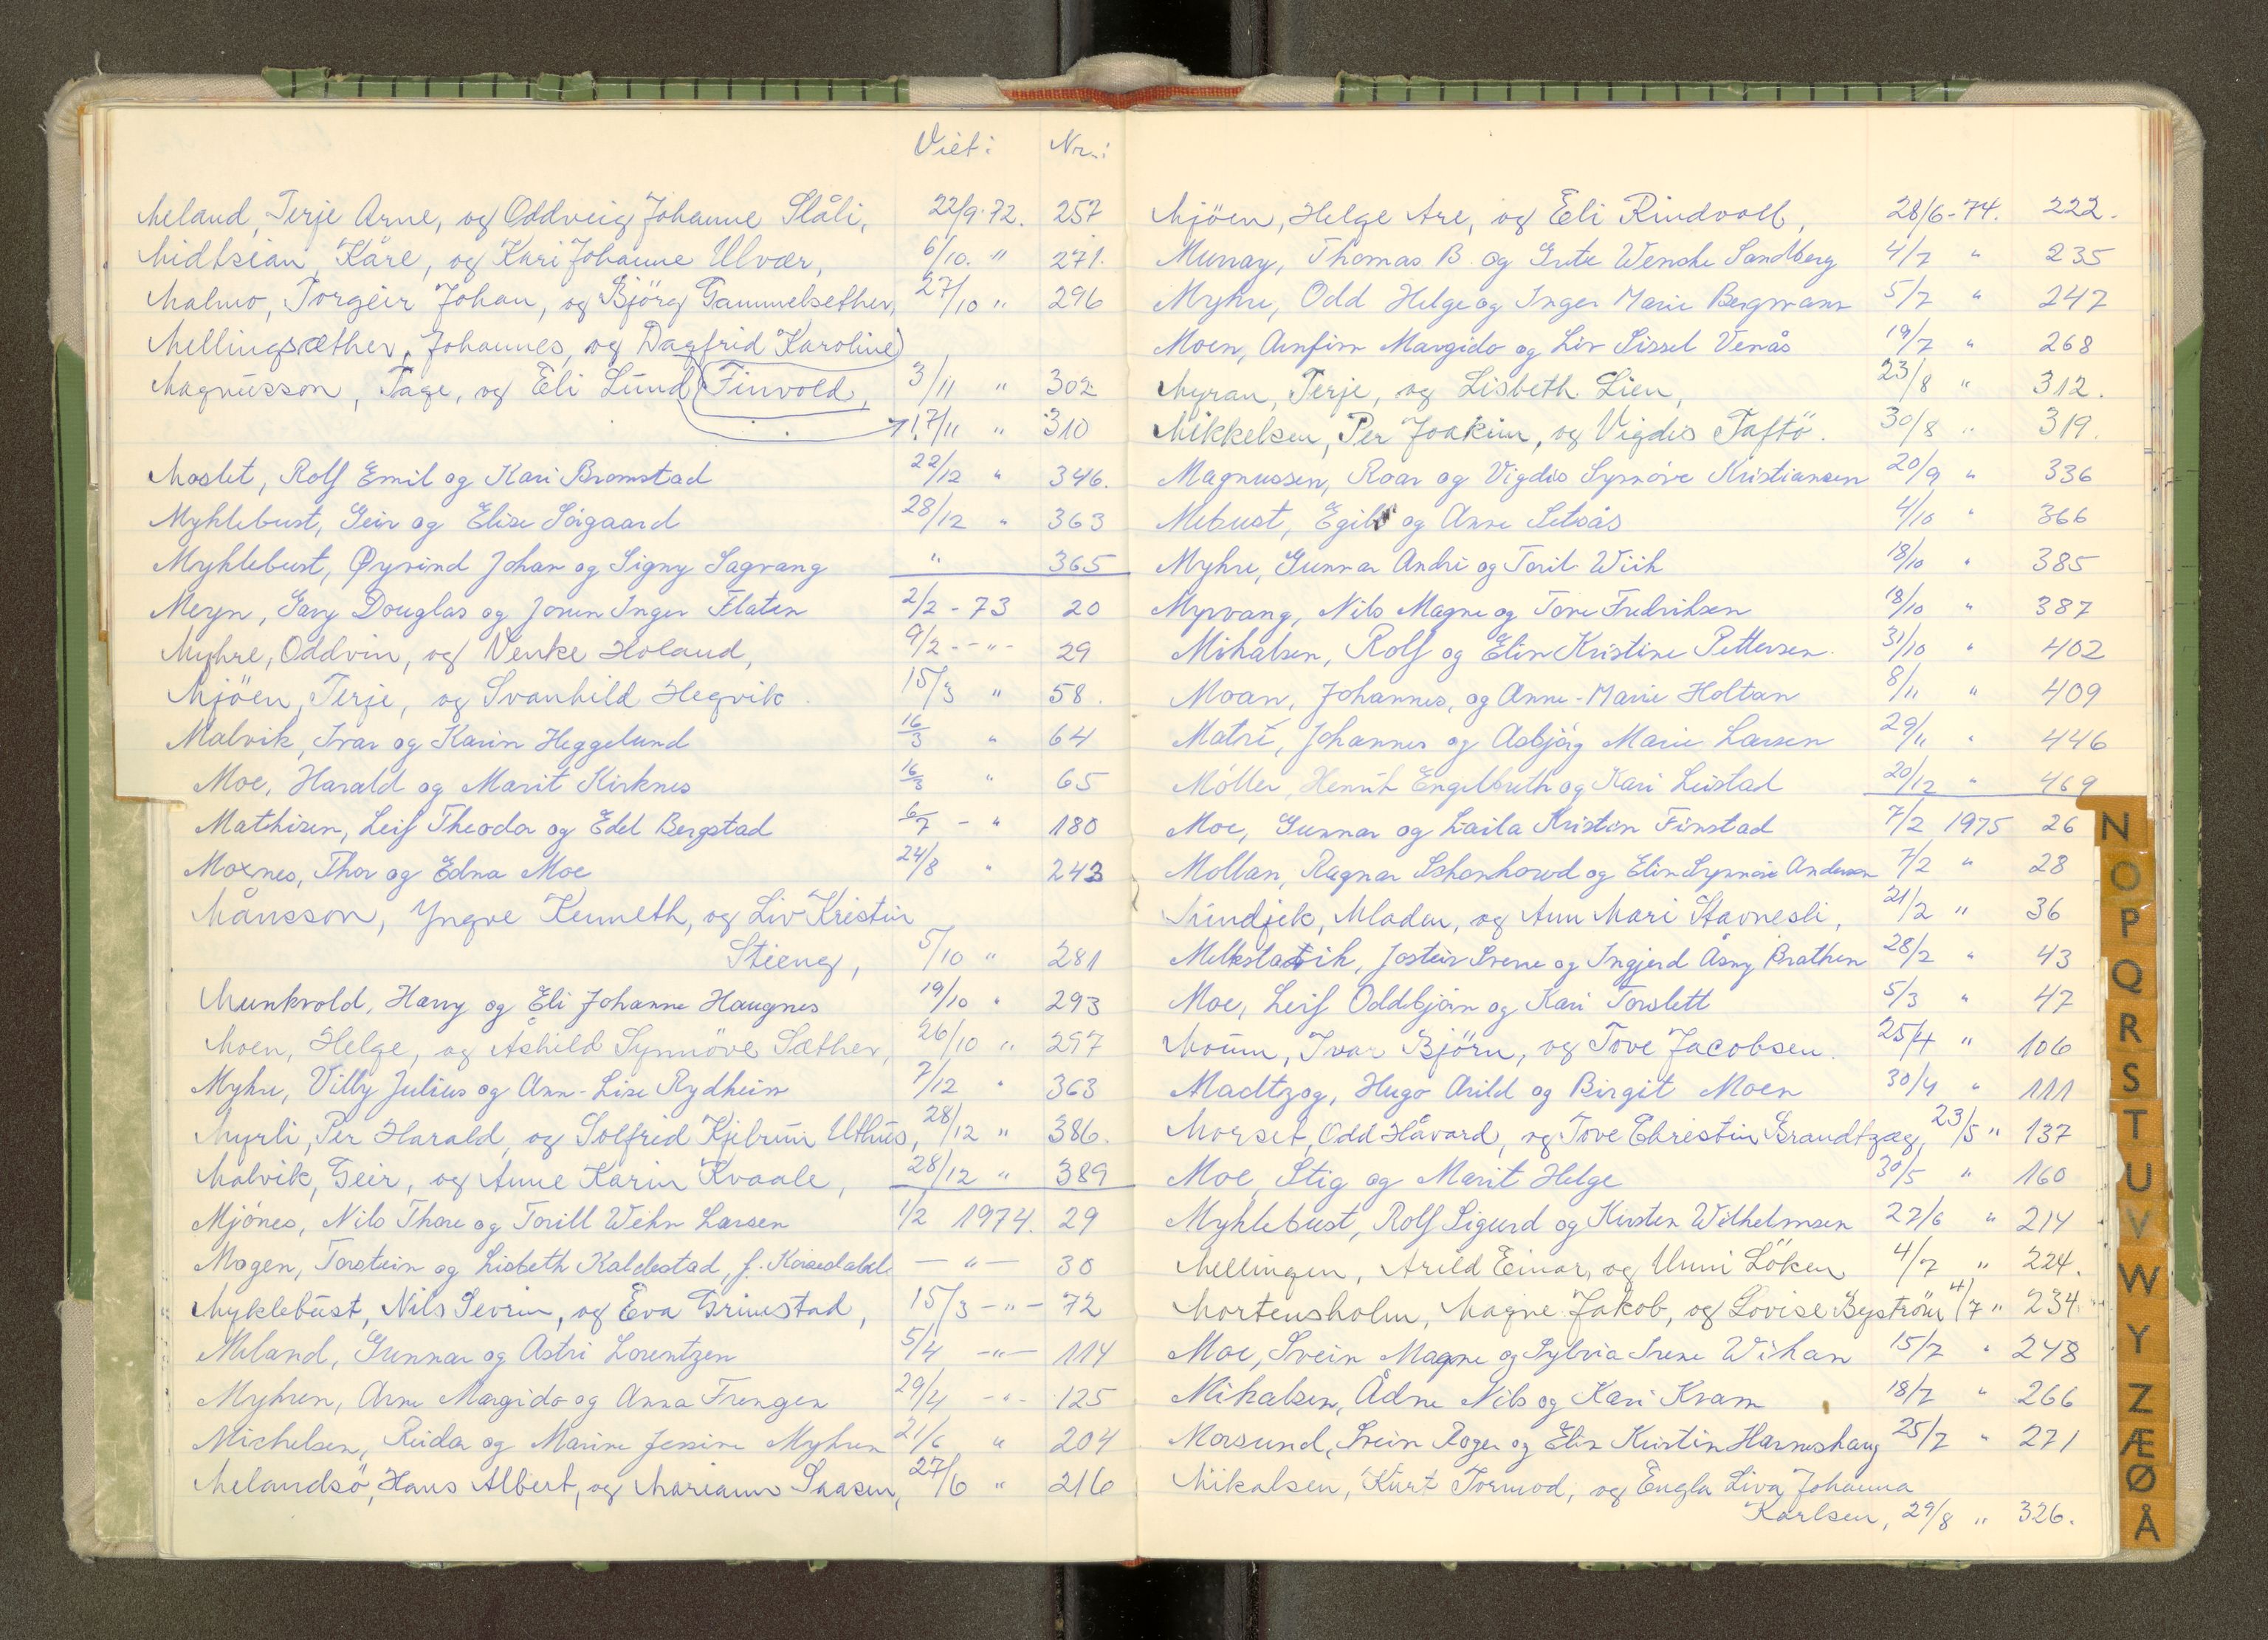 Viet: Nr.:
Meland, Terje Arne, og Oddveig Johanne Slåli, 22/9-72. 257
Midtsian, Kåre, og Kari Johanne Ulvær, 6/10. " 271.
Malmo, Torgeir Johan, og Björg Gammelsether, 27/10 " 296
Mellingsæther, Johannes, og Dagfrid Karoline
Magnusson, Tage, og Eli Lund 3/11 " 302
Finvold, 17/11 " 310
Moslet, Rolf Emil og Kari Bromstad 22/12 " 346.
Myklebust, Geir og Elise Sörgaard 28/12 " 363
Myklebust, Øyvind Johan og Signy Sagvang " 365
Meryn, Gary Douglas og Jorun Inger Flaten 2/2 - 73 20
Myhre, Oddvin, og Venke Holand, 9/2 - " - 29
Mjöen, Terje, og Svanhild Hegvik. 15/3 " 58.
Malvik, Ivar og Karin Heggelund 16/3 " 64
Moe, Harald og Marit Kirknes 16/3 " 65
Mathisen, Leif Theodor og Edel Bergstad 6/7 - " 180
Moxnes, Thor og Edna Moe 24/8 " 243
Månsson, Yngve Kenneth, og Liv Kristin
Stieng, 5/10 " 281
Munkvold, Harry og Eli Johanne Haugnes 19/10 " 293
Moen, Helge, og Åshild Synnöve Sæther, 26/10 " 297
Myhre, Villy Julius og Ann-Lise Rydheim 7/12 " 363
Myrli, Per Harald, og Solfrid Kjelrun Uthus, 28/12 " 386.
Malvik, Geir, og Anne Karin Kvaale, 28/12 " 389
Mjönes, Nils Thore og Torill Wehn Larsen 1/2 1974. 29
Mogen, Torstein og Lisbeth Kaldestad, f. - " - 30
Myklebust, Nils Severin, og Eva Grimstad, 15/3 - " - 72
Meland, Gunnar og Astri Lorentzen 5/4 - " - 114
Myhren, Arne Margido og Anna Frengen 29/4 - " - 125
Michelsen, Reidar og Marine Jensine Myhren 21/6 " 204
Melandsö, Hans Albert, og Mariann Saasen, 27/6 " 216
Mjöen, Helge Are, og Eli Rindvoll, 28/6-74. 222.
Murray, Thomas B. og Grete Wenche Sandberg 4/7 " 235
Myhre, Odd Helge og Inger Marie Bergmann 5/7 " 247
Moen, Arnfinn Margido og Liv Sissel Venås 19/7 " 268
Myran, Terje, og Lisbeth Lien, 23/8 " 312.
Mikkelsen, Per Joakim, og Vigdis Taftö. 30/8 " 319.
Magnussen, Roar og Vigdis Synnöve Kristiansen 20/9 " 336
Mebust, Egil og Anne Setsås 4/10 " 366
Myhre, Gunnar André og Toril Wiik 18/10 " 385
Myrvang, Nils Magne og Tove Fredriksen 18/10 " 387
Mikalsen, Rolf og Elin Kristine Pettersen. 31/10 " 402
Moan, Johannes, og Anne-Marie Holtan 8/11 " 409
Matri, Johannes og Asbjörg Marie Larsen 29/11 " 446
Möller, Henrik Engelbreth og Kari Leistad 20/12 " 469
Moe, Gunnar og Laila Kristin Finstad 7/2 1975 26
Mollan, Ragnar og Elin Synnöve Andersen 7/2 " 28
Mundjek, Mladen, og Ann Mari Stavnesli, 21/2 " 36
Melkstavik, Jostein Sverre og Ingjerd Åsny Bråthen 28/2 " 43
Moe, Leif Oddbjörn og Kari Torslett 5/3 " 47
Moum, Ivar Björn, og Tove Jacobsen. 25/4 " 106
Madtzog, Hugo Arild og Birgit Moen 30/4 " 111
Morset, Odd Håvard, og Tove Christin Brandtzæg, 23/5 " 137
Moe, Stig og Marit Helge 30/5 " 160
Myklebust, Rolf Sigurd og Kirsten Wilhelmsen 27/6 " 214
Mellingen, Arild Einar, og Unni Löken 4/7 " 224.
Mortensholm, Magne Jakob, og Lovise Byström 4/7 " 234.
Moe, Svein Magne og Sylvia Irene Wikan 15/7 " 248
Mikalsen, Ådne Nils og Kari Kvam 18/7 " 266
Morsund, Svein Roger og Elin Kirstin Harneshaug 25/7 " 271
Mikalsen, Kurt Tormod, og Engla Liva Johanna
Karlsen, 29/8 " 326.
N
O
P
Q
R
S
T
U
V
W
Y
Z
Æ
Ø
Å